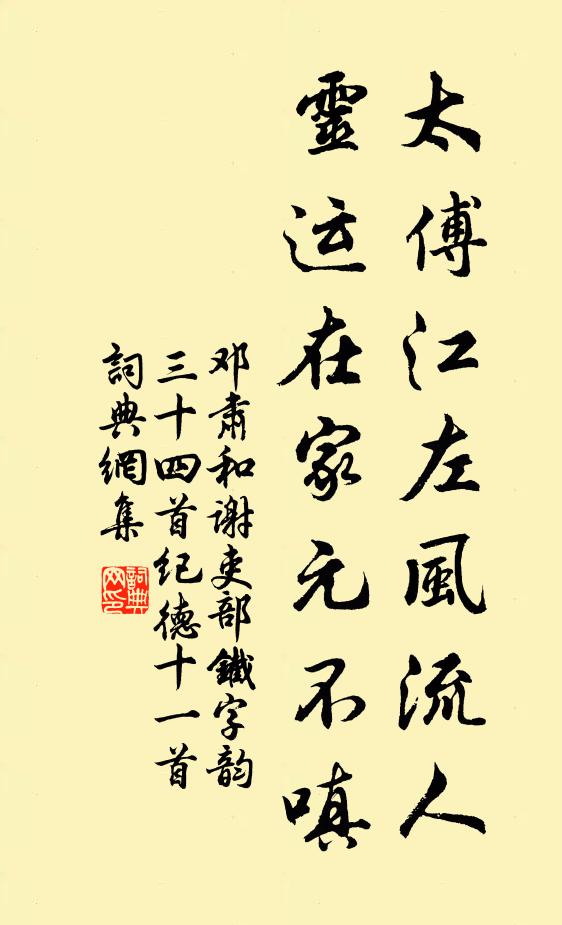 太傅江左風流人
靈运在家元不嗔
邓肃和谢吏部鐵字韵
三十四首纪德十一首
詞典網集
詞典网印